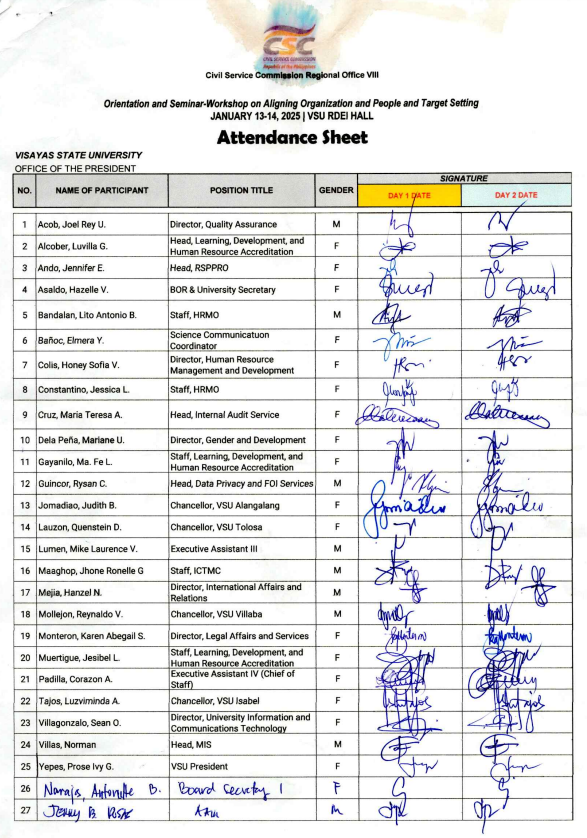 CSC
CIVIL SERVICE COMMISSION
Republic of the Philippines
Civil Service Commission Regional Office VIII
Orientation and Seminar-Workshop on Aligning Organization and People and Target Setting
JANUARY 13-14, 2025 | VSU RDEI HALL
Attendance Sheet
VISAYAS STATE UNIVERSITY
OFFICE OF THE PRESIDENT
NO. NAME OF PARTICIPANT POSITION TITLE GENDER SIGNATURE
DAY 1 DATE DAY 2 DATE
1 Acob, Joel Rey U. Director, Quality Assurance M
2 Alcober, Luvilla G. Head, Learning, Development, and Human Resource Accreditation F
3 Ando, Jennifer E. Head, RSPPRO F
4 Asaldo, Hazelle V. BOR & University Secretary F
5 Bandalan, Lito Antonio B. Staff, HRMO M
6 Bañoc, Elmera Y. Science Communicatuon Coordinator F
7 Colis, Honey Sofia V. Director, Human Resource Management and Development F
8 Constantino, Jessica L. Staff, HRMO F
9 Cruz, Maria Teresa A. Head, Internal Audit Service F
10 Dela Peña, Mariane U. Director, Gender and Development F
11 Gayanilo, Ma. Fe L. Staff, Learning, Development, and Human Resource Accreditation F
12 Guincor, Rysan C. Head, Data Privacy and FOI Services M
13 Jomadiao, Judith B. Chancellor, VSU Alangalang F
14 Lauzon, Quenstein D. Chancellor, VSU Tolosa F
15 Lumen, Mike Laurence V. Executive Assistant III M
16 Maaghop, Jhone Ronelle G Staff, ICTMC M
17 Mejia, Hanzel N. Director, International Affairs and Relations M
18 Mollejon, Reynaldo V. Chancellor, VSU Villaba M
19 Monteron, Karen Abegail S. Director, Legal Affairs and Services F
20 Muertigue, Jesibel L. Staff, Learning, Development, and Human Resource Accreditation F
21 Padilla, Corazon A. Executive Assistant IV (Chief of Staff) F
22 Tajos, Luzviminda A. Chancellor, VSU Isabel F
23 Villagonzalo, Sean O. Director, University Information and Communications Technology F
24 Villas, Norman Head, MIS M
25 Yepes, Prose Ivy G. VSU President F
26 B. Board Secretary 1 F
27 JENNY B. M